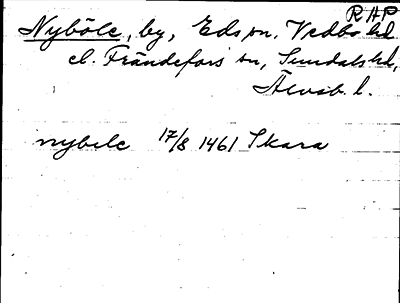 RAP
Nyböle, by, Eds sn, Vedbo hd
el. Frändefors sn, Sundals hd,
Älvsb. l.
nybele 17/8 1461 Skara